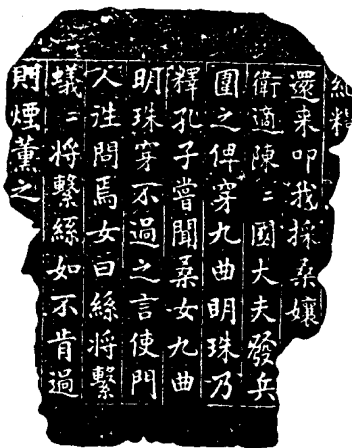 糾糧
還來叩我採桑孃
衛適陳〻國大夫發兵
圍之俾穿九曲明珠乃
釋孔子嘗聞桑女九曲
明珠穿不過之言使門
人往問焉女曰絲將繫
蟻〻將繫絲如不肯過
則煙薰之